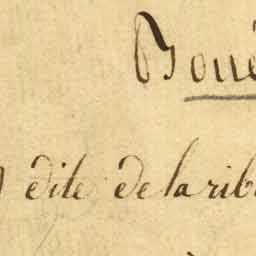 Boué
dite de la rib